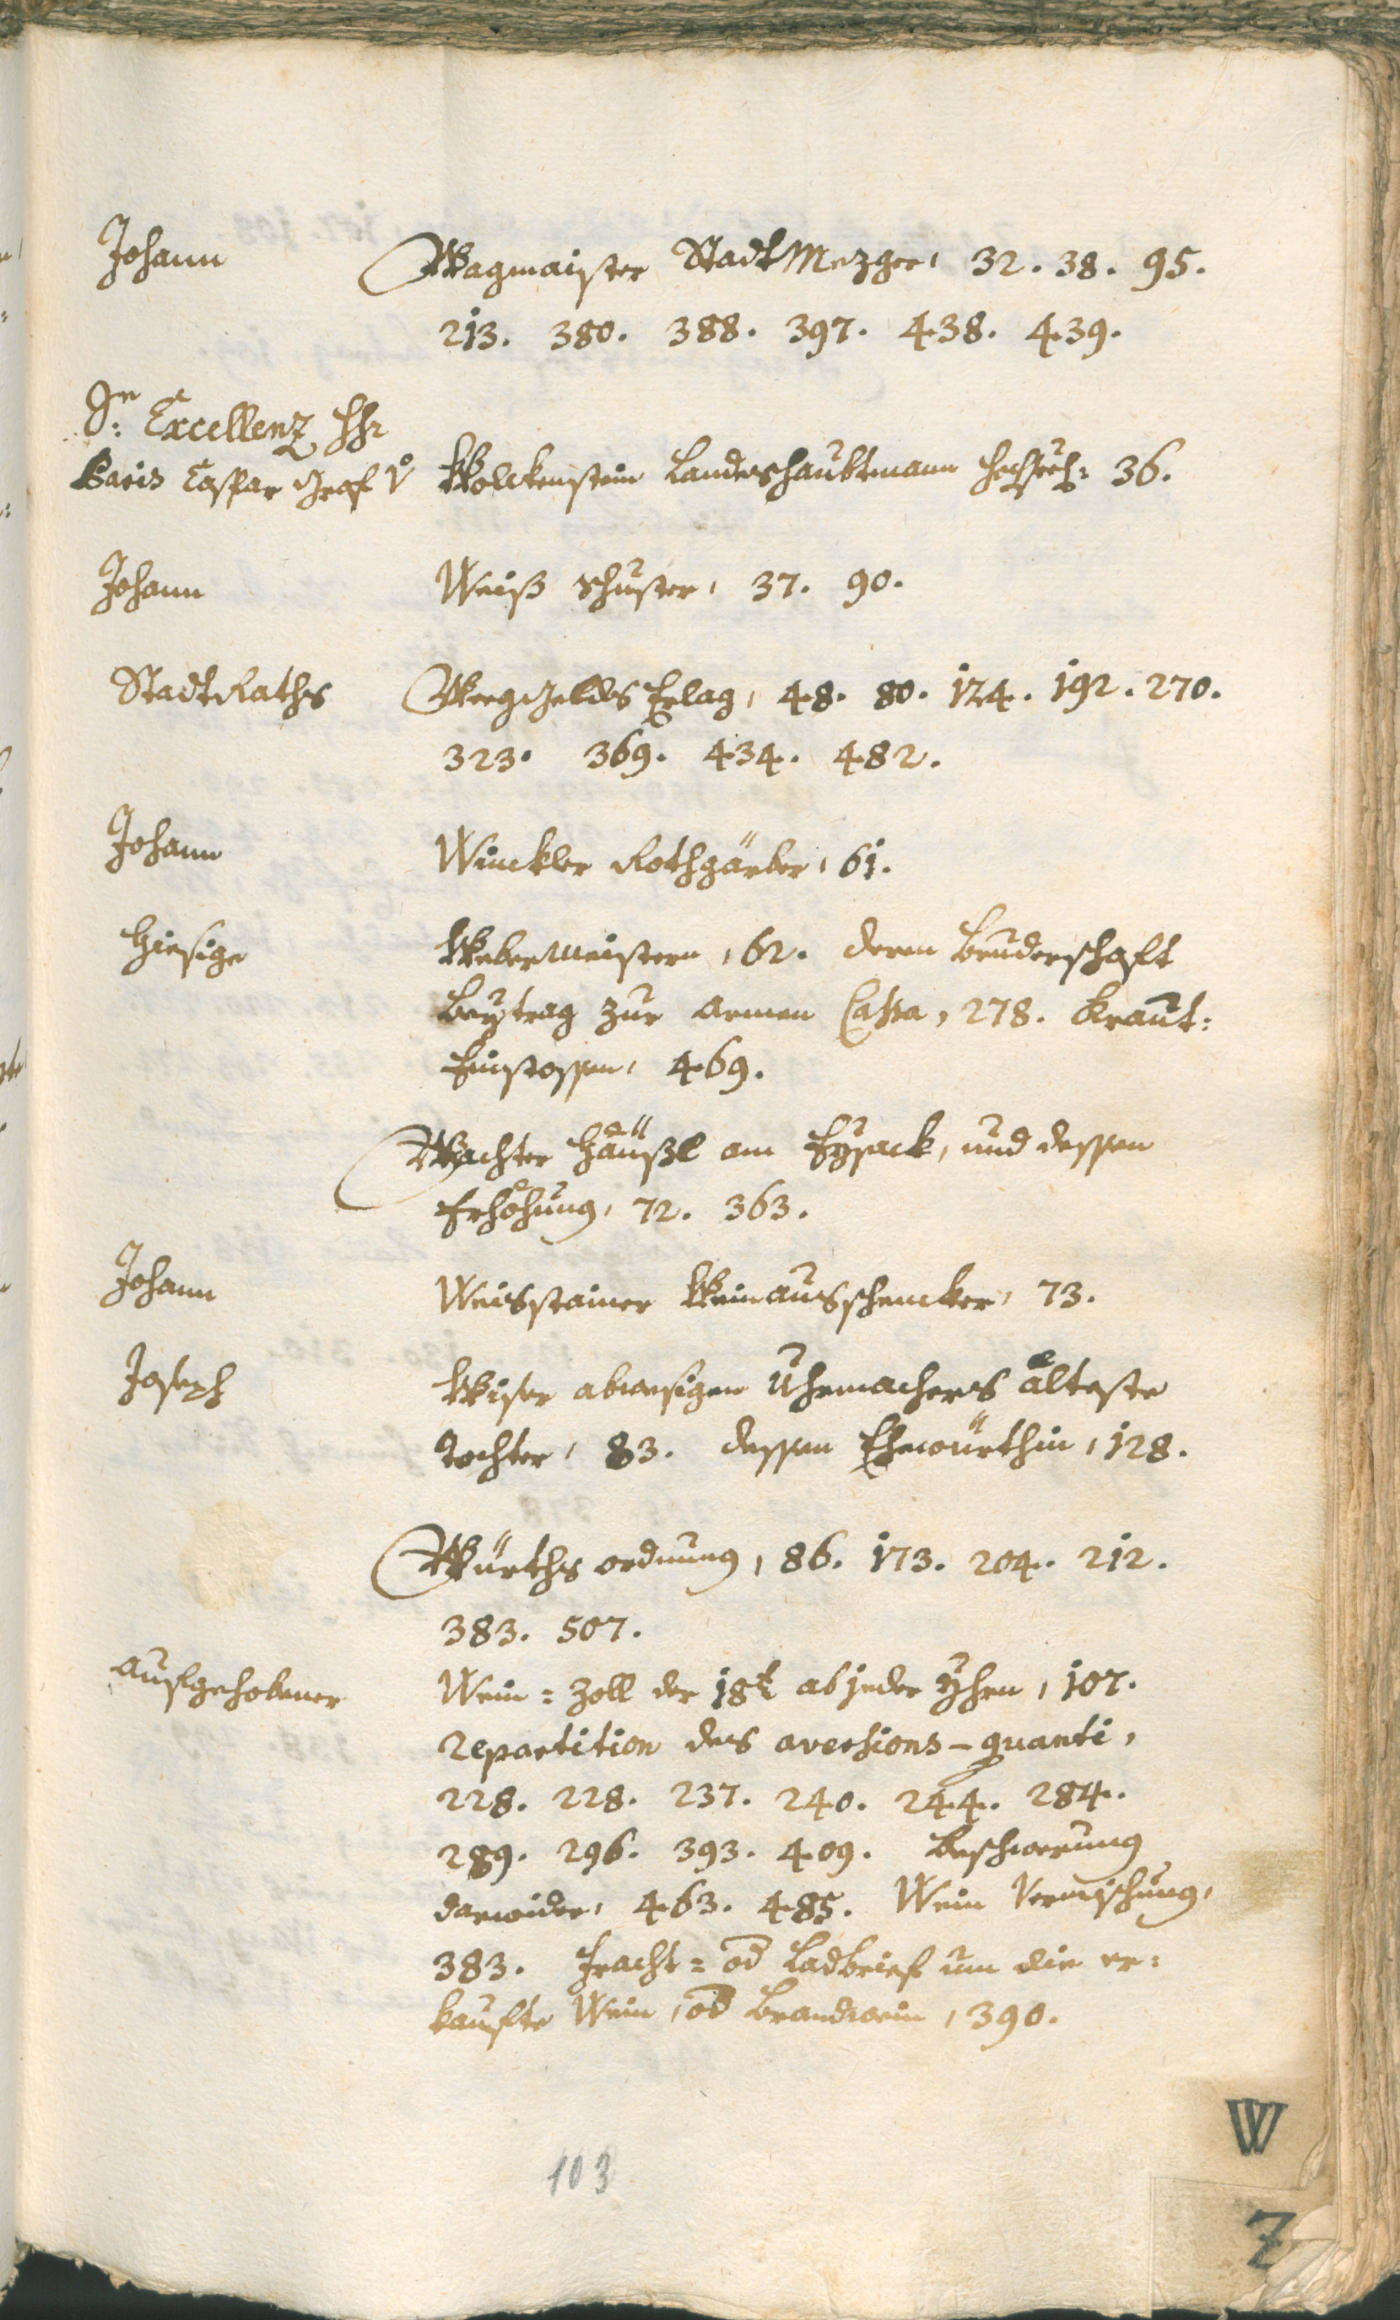 Johann Wagmaister StadtMezger, 32. 38. 95.
213. 380. 388. 397. 438. 439.
Sr: Excellenz Hr
Paris Caspar Graf v Wolckenstein Landeshaubtmann 36.
Johann Weiß Schuster, 37. 90.
StadtRaths WegGelds Erlag, 48. 80. 174. 192. 270.
323. 369. 434. 482.
Johann Winckler Rothgärber, 61.
Hiesige Webermeistern, 62. deren Bruderschaft
Beytrag zur armen Cassa, 278. Kraut-
Einstossen, 469.
Wachter Häußl am Eysack, und dessen
Erhöhung, 72. 363.
Johann Weisstainer Weinausschencker, 73.
Joseph Wiser abwesigen Uhrmachers älteste
Tochter, 83. dessen Ehewürthin, 128.
Würths ordnung, 86. 173. 204. 212.
383. 507.
Aufgehobener Wein = Zoll der 18 ab jeder Yhrn, 107.
repartition des aversions - quanti,
228. 228. 237. 240. 244. 284.
289. 296. 393. 409. Beschwerung
darwider, 463. 485. Wein Vermischung,
383. Fracht = od Ladbrief um die er=
kaufte Wein, od Brandwein, 390.
103
W
Z